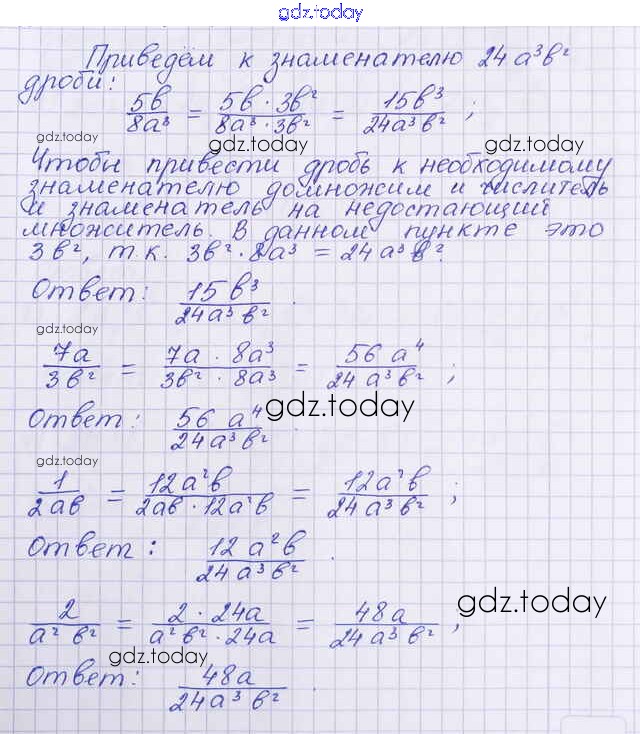 gdz.today
Приведём к знаменателю 24a³b²
дроби:
5b/8a³ = 5b · 3b²/8a³ · 3b² = 15b³/24a³b² ;
gdz.today gdz.today
Чтобы привести дробь к необходимому
знаменателю домножим и числитель
и знаменатель на недостающий
множитель. В данном пункте это
3b², т.к. 3b² · 8a³ = 24a³b².
Ответ: 15b³/24a³b² .
gdz.today
7a/3b² = 7a · 8a³/3b² · 8a³ = 56a⁴/24a³b² ;
Ответ: 56a⁴/24a³b² .
gdz.today
gdz.today
1/2ab = 12a²b/2ab · 12a²b = 12a²b/24a³b² ;
Ответ: 12a²b/24a³b² .
gdz.today
2/a²b² = 2 · 24a/a²b² · 24a = 48a/24a³b² ;
gdz.today
Ответ: 48a/24a³b² .